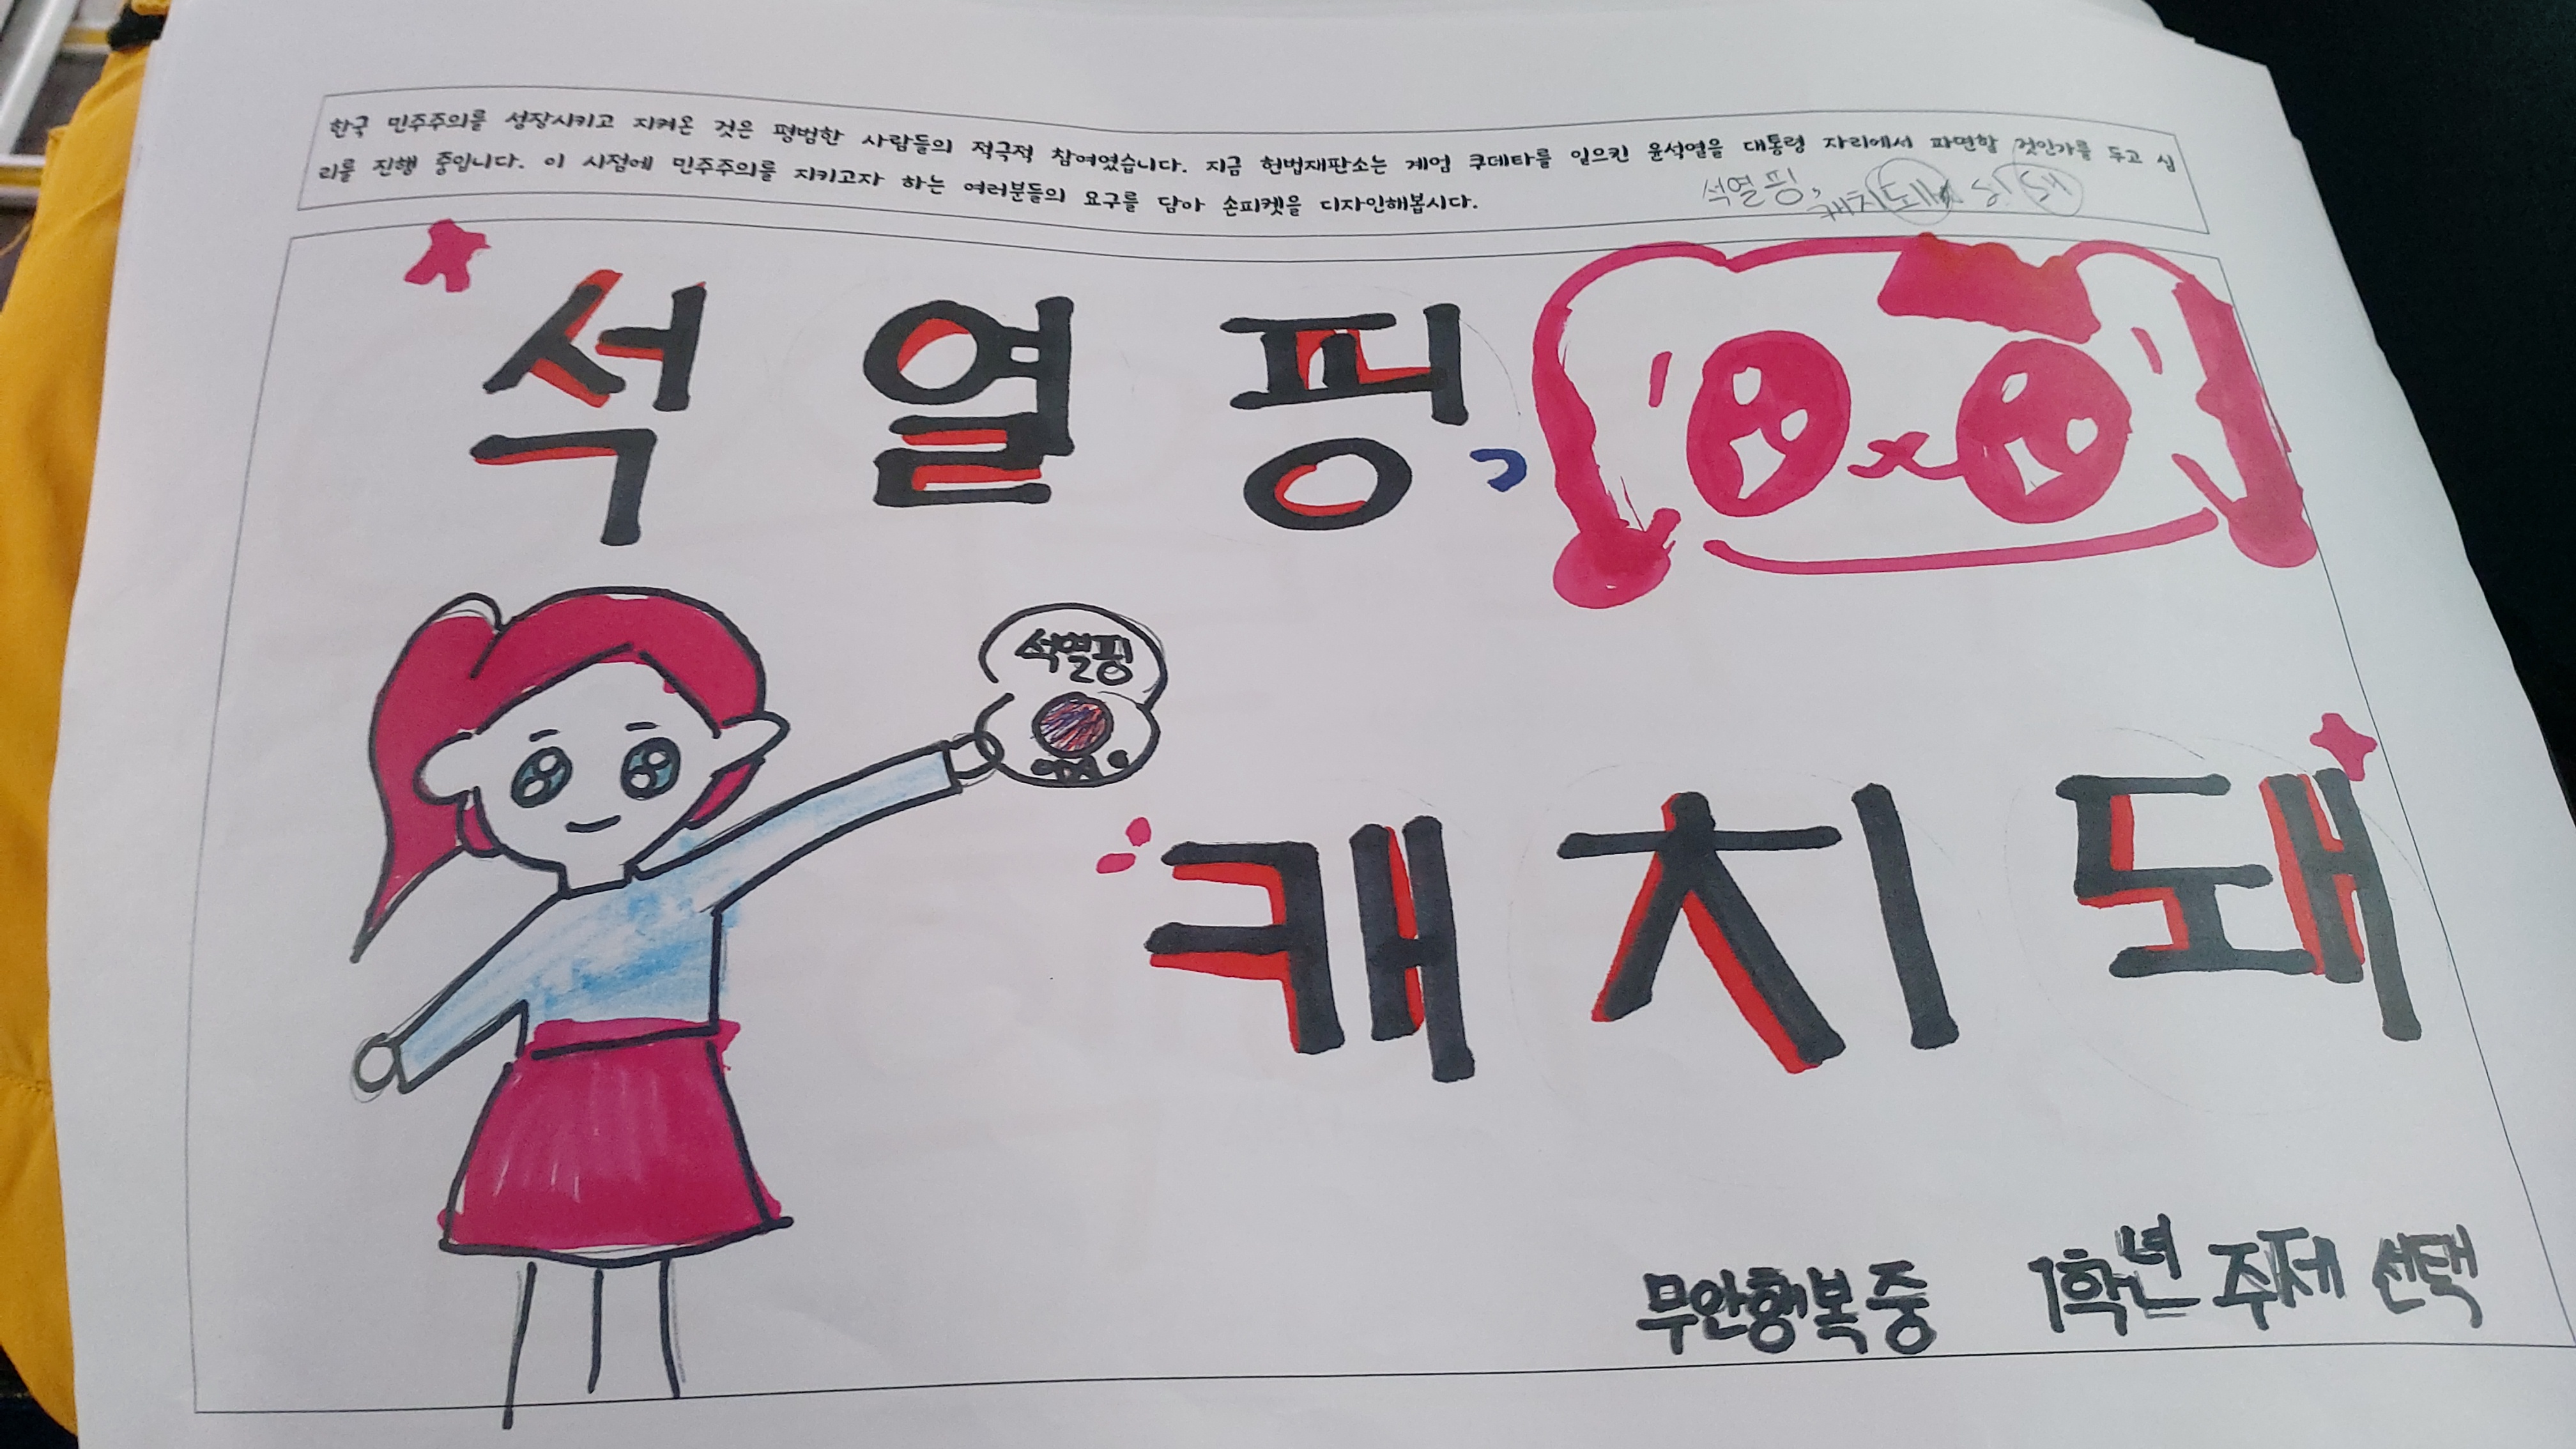 한국 민주주의를 성장시키고 지켜온 것은 평범한 사람들의 적극적 참여였습니다. 지금 헌법재판소는 계엄 쿠데타를 일으킨 윤석열을 대통령 자리에서 파면할 것인가를 두고 심
리를 진행 중입니다. 이 시점에 민주주의를 지키고자 하는 여러분들의 요구를 담아 손피켓을 디자인해봅시다.
석열핑, 캐치돼
석열핑,
석열핑
캐치돼
무안행복중 1학년 주제 선택